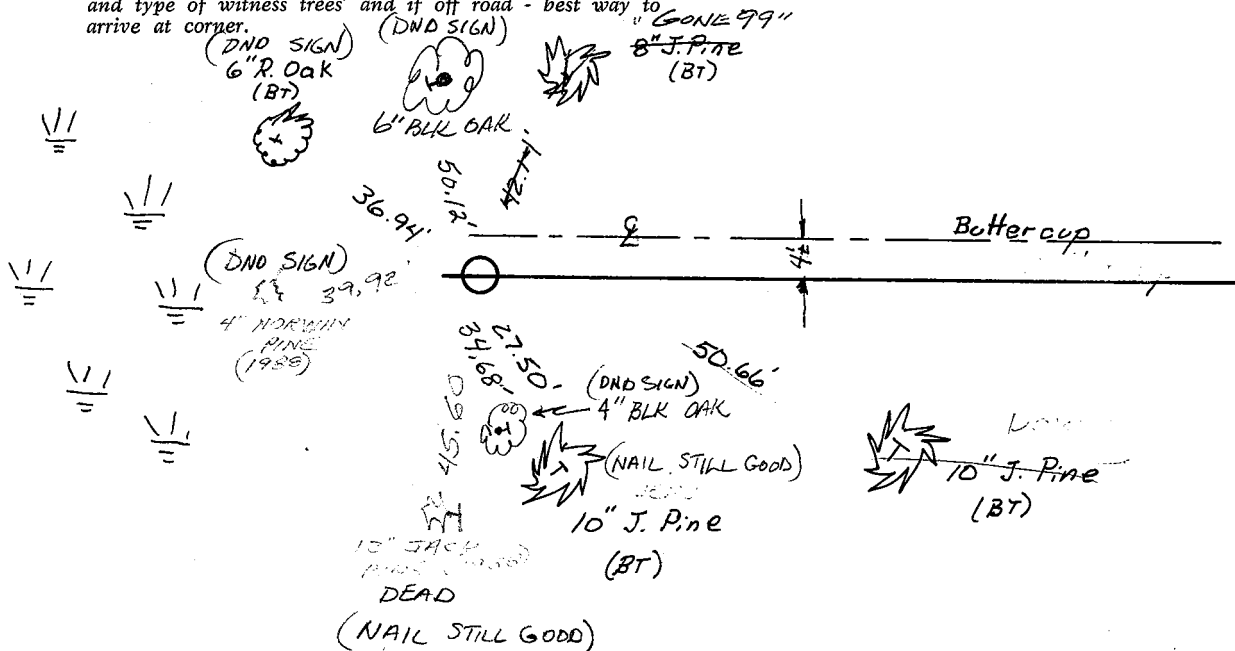 and type of witness trees and if off road - best way to
arrive at corner.
(DND SIGN)
6" R. Oak
(BT)
(DND SIGN)
6" BLK OAK
"GONE 99"
8" J. Pine
(BT)
36.94'
50.12'
42.17'
℄
Buttercup
4½'
(DND SIGN)
39.92'
4" NORWAY
PINE
(1988)
34.68'
27.50'
50.66'
45.60
(DND SIGN)
4" BLK OAK
(NAIL STILL GOOD)
10" J. Pine
(BT)
10" J. Pine
(BT)
JACK
DEAD
(NAIL STILL GOOD)